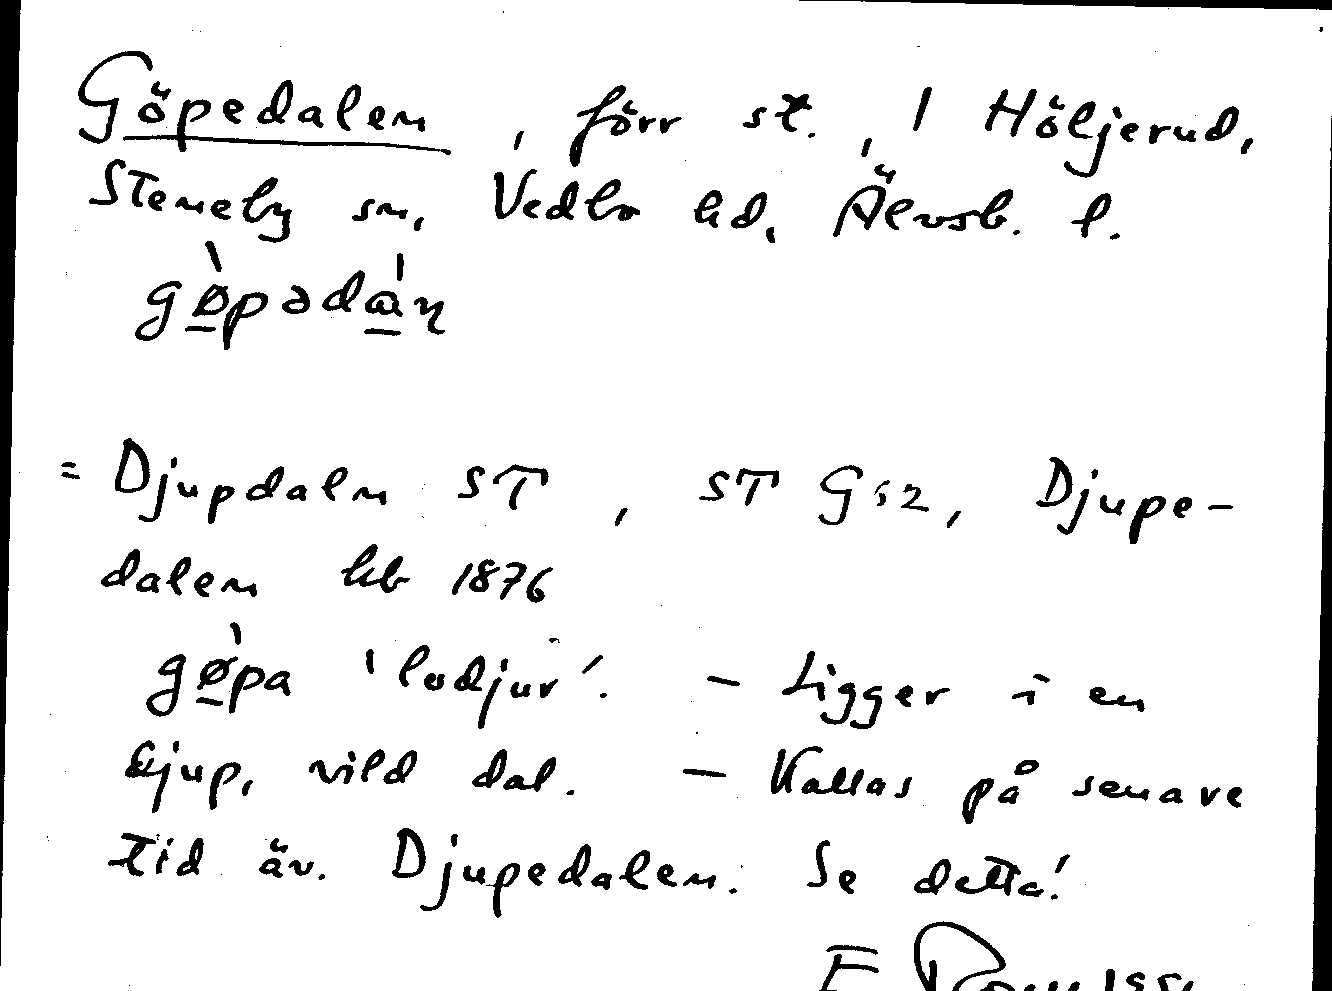 Göpedalen, förr st., 1 Höljerud,
Steneby sn, Vedbo hd, Älvsb. l.
gø̀pədán
= Djupdaln ST, ST G52, Djupe-
dalen hb 1876
gø̀pa 'lodjur'. – Ligger i en
djup, vild dal. – Kallas på senare
tid äv. Djupedalen. Se detta!